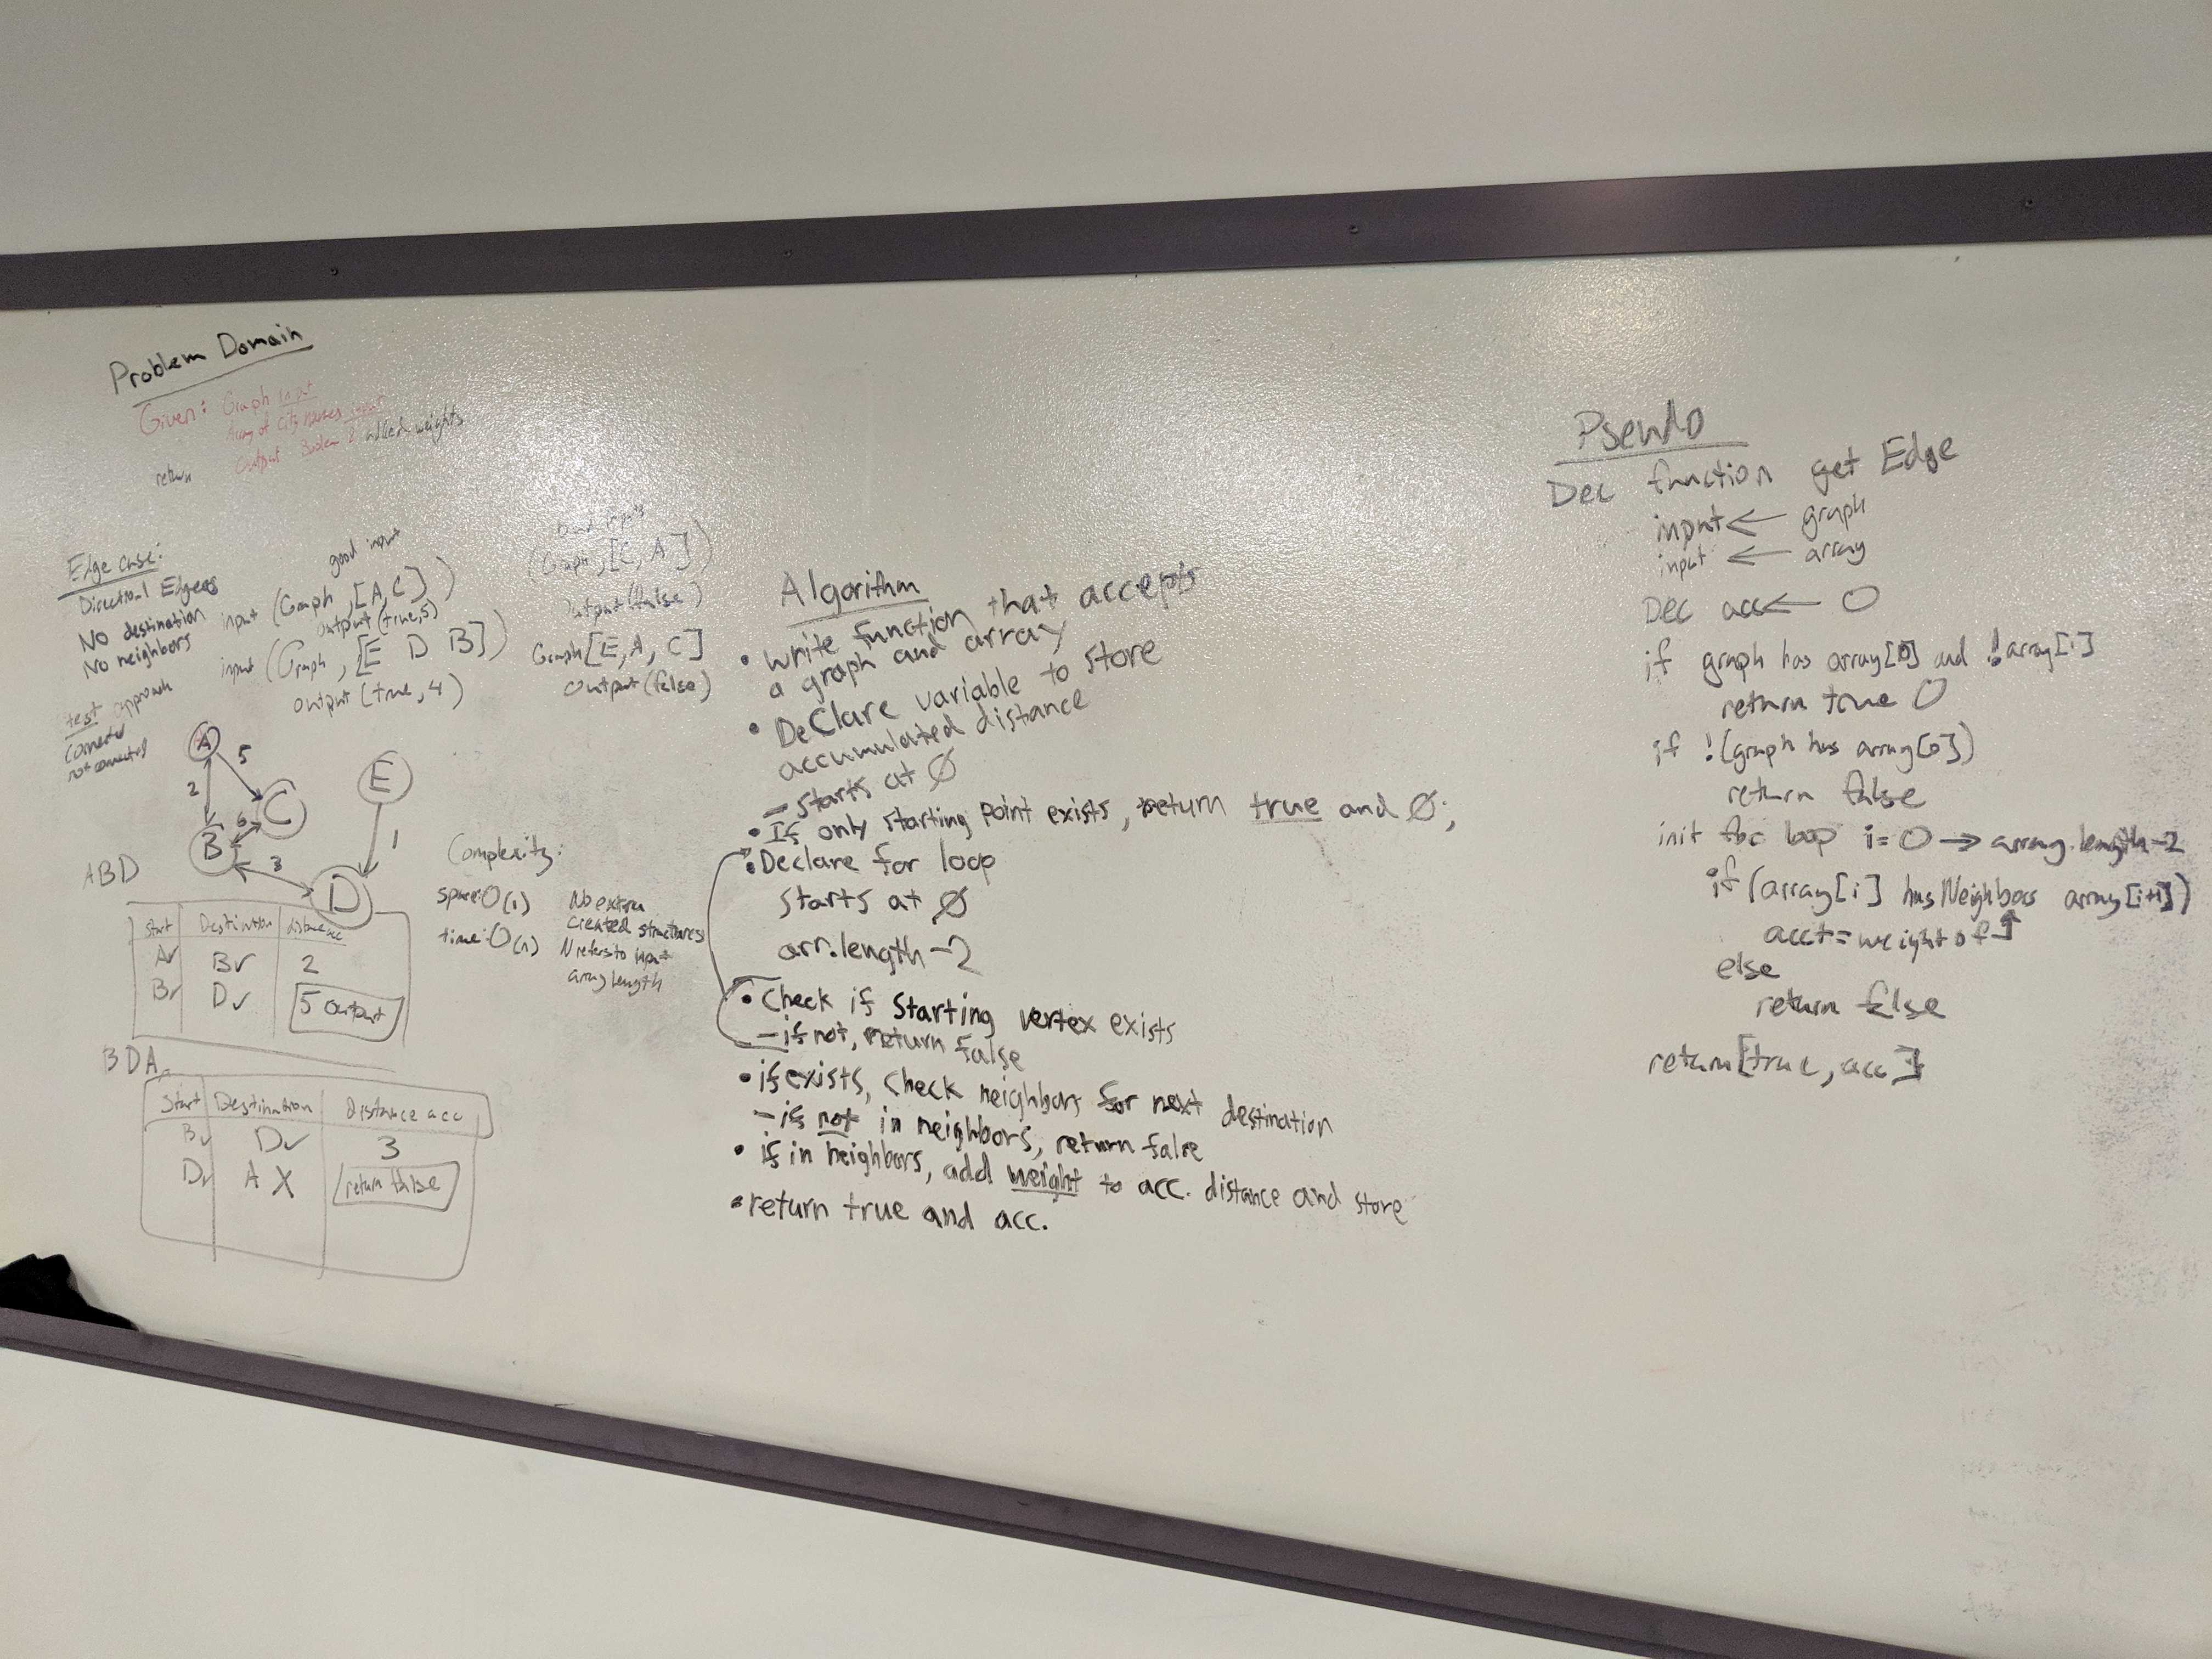 Problem Domain
Given: Graph Input
Array of City Names input
Output Boolean & added weights
return
Edge Case:
Directional Edges
No destination
No neighbors
test approach
connected
not connected
good input
input (Graph, [A,C])
output (true,5)
input (Graph, [E D B])
output (true, 4)
Bad inputs
(Graph, [C, A])
Output (false)
Graph [E, A, C]
Output (false)
A
5
2
C
6
B
3
E
1
D
ABD
Start Destination distance acc
A✓ B✓ 2
B✓ D✓ 5 output
BDA
Start Destination distance acc
B✓ D✓ 3
D✓ A X return false
Complexity:
space: O(1) No extra
created structures
time: O(n) N refers to input
array length
Algorithm
• write function that accepts
a graph and array
• DeClare variable to store
accumulated distance
- starts at Ø
• If only starting point exists, return true and Ø;
• Declare for loop
starts at Ø
arr.length-2
• Check if Starting vertex exists
- if not, return false
• if exists, check neighbors for next destination
- if not in neighbors, return false
• if in neighbors, add weight to acc. distance and store
• return true and acc.
Pseudo
Dec function get Edge
input ← graph
input ← array
Dec acc ← 0
if graph has array[0] and !array[1]
return true 0
if !(graph has array[0])
return false
init for loop i=0 → array.length-2
if (array[i] hasNeighbors array[i+1])
acc+= weight of ↑
else
return false
return [true, acc]